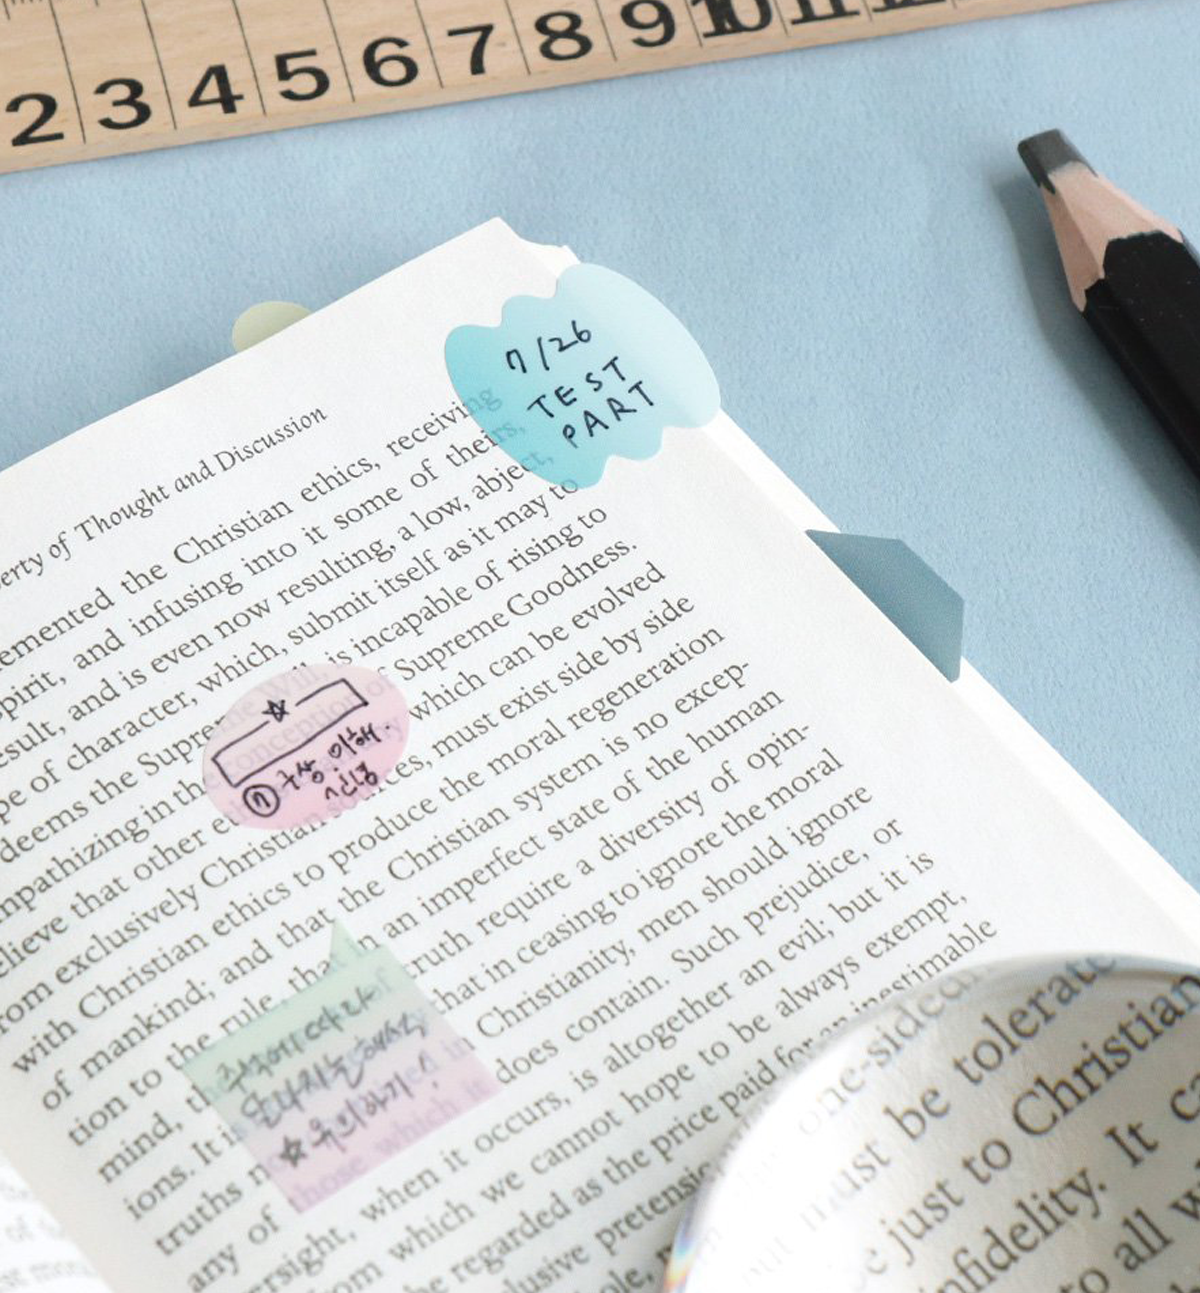 2 3 4 5 6 7 8 9 10 11 12
7/26
TEST
PART
erty of Thought and Discussion
emented the Christian ethics, receiving
pirit, and infusing into it some of theirs,
esult, and is even now resulting, a low, abject,
pe of character, which, submit itself as it may to
deems the Supreme Will, is incapable of rising to
mpathizing in the conception of Supreme Goodness.
elieve that other which can be evolved
rom exclusively Christian sources, must exist side by side
with Christian ethics to produce the moral regeneration
of mankind; and that the Christian system is no excep-
tion to the rule, that in an imperfect state of the human
mind, truth require a diversity of opin-
ions. It is that in ceasing to ignore the moral
truths in Christianity, men should ignore
any of those which does contain. Such prejudice, or
ersight, when it occurs, is altogether an evil; but it is
om which we cannot hope to be always exempt,
be regarded as the price paid for an inestimable
lusive
⑦
one-sided
must be tolerate
be just to Christian
infidelity. It
to all